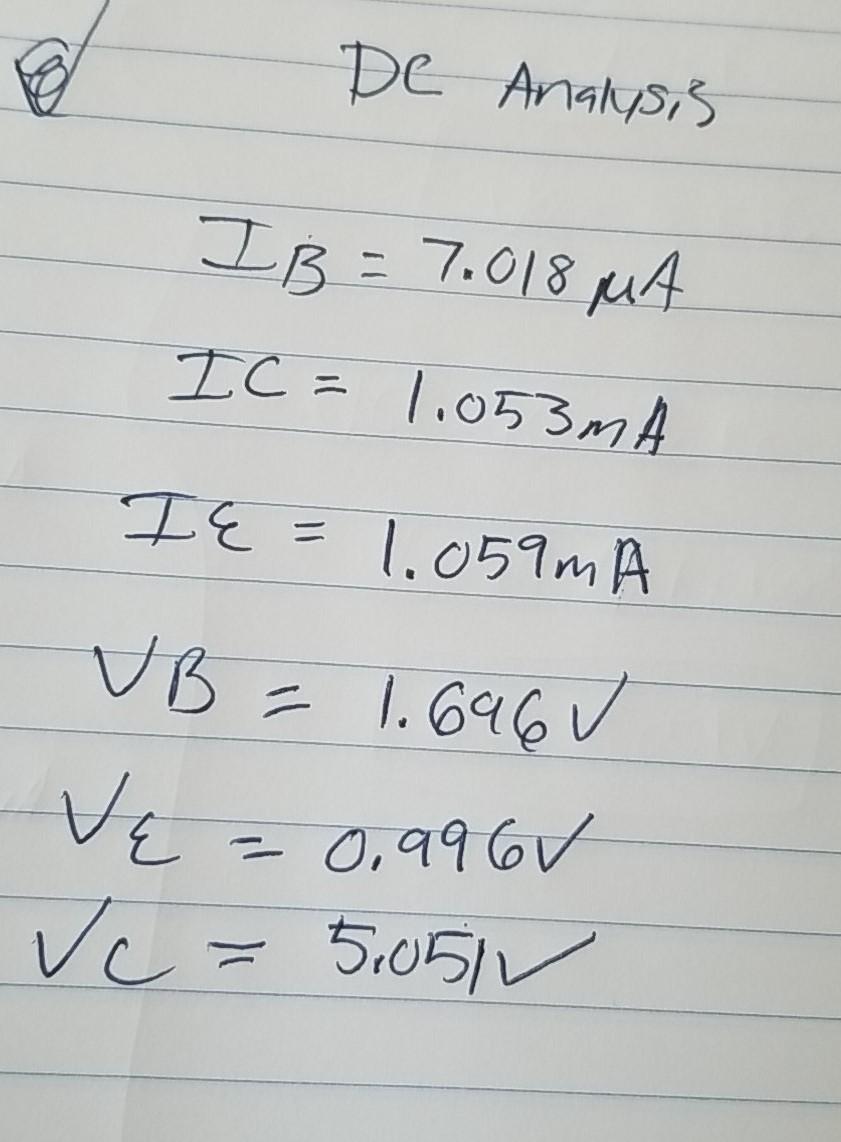 DC Analysis
IB = 7.018 μA
IC = 1.053mA
IE = 1.059mA
VB = 1.696V
VE = 0.996V
VC = 5.051V